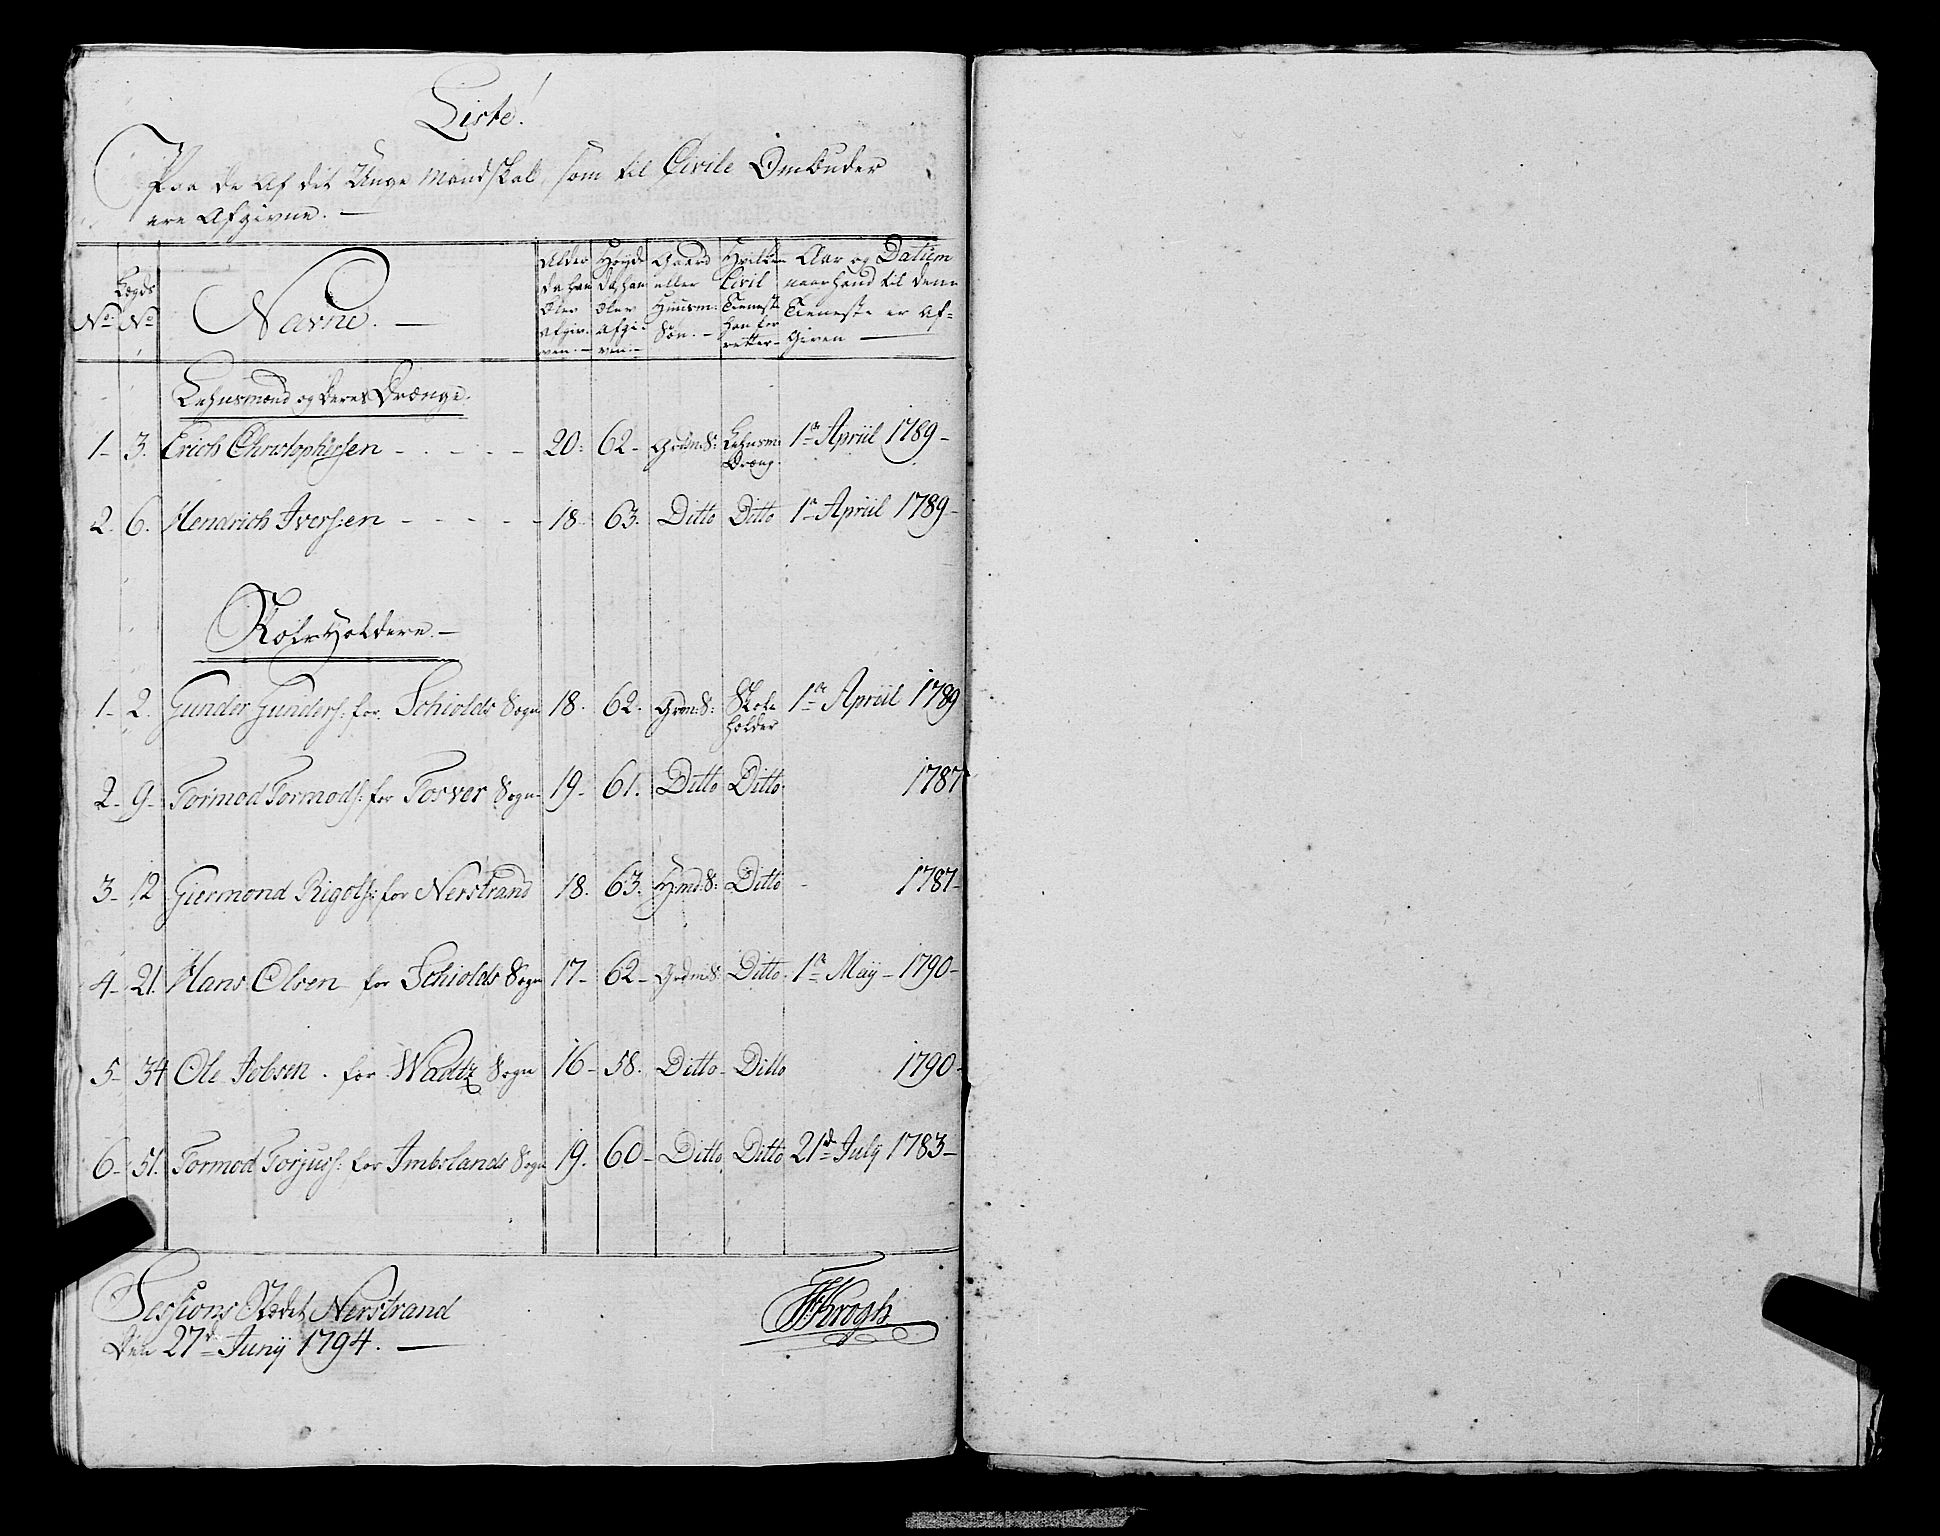 Liste!
Paa de af det Unge Mandskab, som til Civile Ombuder
ere Afgivne. —
No. | Lægds No | Navne. — | Alder da han blev afgiven. — | Høyde da han blev afgiven. — | Gaard eller Huusm: Søn. — | Hvilken Civil Tieneste han forretter — | Aar og Datum naar hand til denne Tieneste er Afgiven —
Lehnsmænd og deres Drænge.
1- 3. Erich Christophersen - - - - - 20: 62- Grdm: S: Lehnsm: Dræng. 1te Apriil 1789-
2. 6. Hendrich Ivers:en - - - - - 18. 63. Ditto Ditto 1te Apriil 1789-
Skoleholdere. —
1- 2. Gunder Gunders: for Schiolds Sogn 18. 62. Grdm: S: Skoleholder 1te Apriil 1789
2- 9- Tormod Tormods: for Tosver Sogn- 19- 61. Ditto Ditto. 1787
3- 12 Giermond Rigols: for Nerstrand 18. 63. Hmd: S: Ditto - 1787-
4- 21. Hans Olsen for Schiolds Sogn 17- 62- Grdm: S: Ditto. 1te Maÿ - 1790-
5- 34 Ole Jobsen. for Wadtz Sogn 16- 58. Ditto- Ditto 1790-
6- 51. Tormod Torjuss: for Imbslands Sogn 19. 60- Ditto. Ditto 21de Julÿ 1783-
Sessions Stædet Nerstrand
Den 27de Junÿ 1794. —
FKrogh